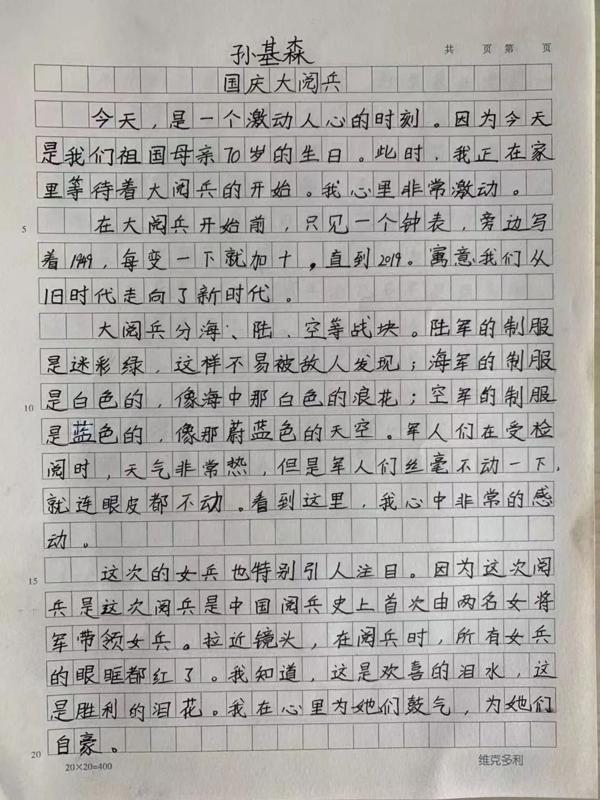 孙基森
共 页 第 页
国庆大阅兵
今天，是一个激动人心的时刻。因为今天
是我们祖国母亲70岁的生日。此时，我正在家
里等待着大阅兵的开始。我心里非常激动。
5 在大阅兵开始前，只见一个钟表，旁边写
着1949，每变一下就加十，直到2019。寓意我们从
旧时代走向了新时代。
大阅兵分海、陆、空等战块。陆军的制服
是迷彩绿，这样不易被敌人发现；海军的制服
10 是白色的，像海中那白色的浪花；空军的制服
是蓝色的，像那蔚蓝色的天空。军人们在受检
阅时，天气非常热，但是军人们丝毫不动一下，
就连眼皮都不动。看到这里，我心中非常的感
动。
15 这次的女兵也特别引人注目。因为这次阅
兵是这次阅兵是中国阅兵史上首次由两名女将
军带领女兵。拉近镜头，在阅兵时，所有女兵
的眼眶都红了。我知道，这是欢喜的泪水，这
是胜利的泪花。我在心里为她们鼓气，为她们
20 自豪。
20×20=400 维克多利